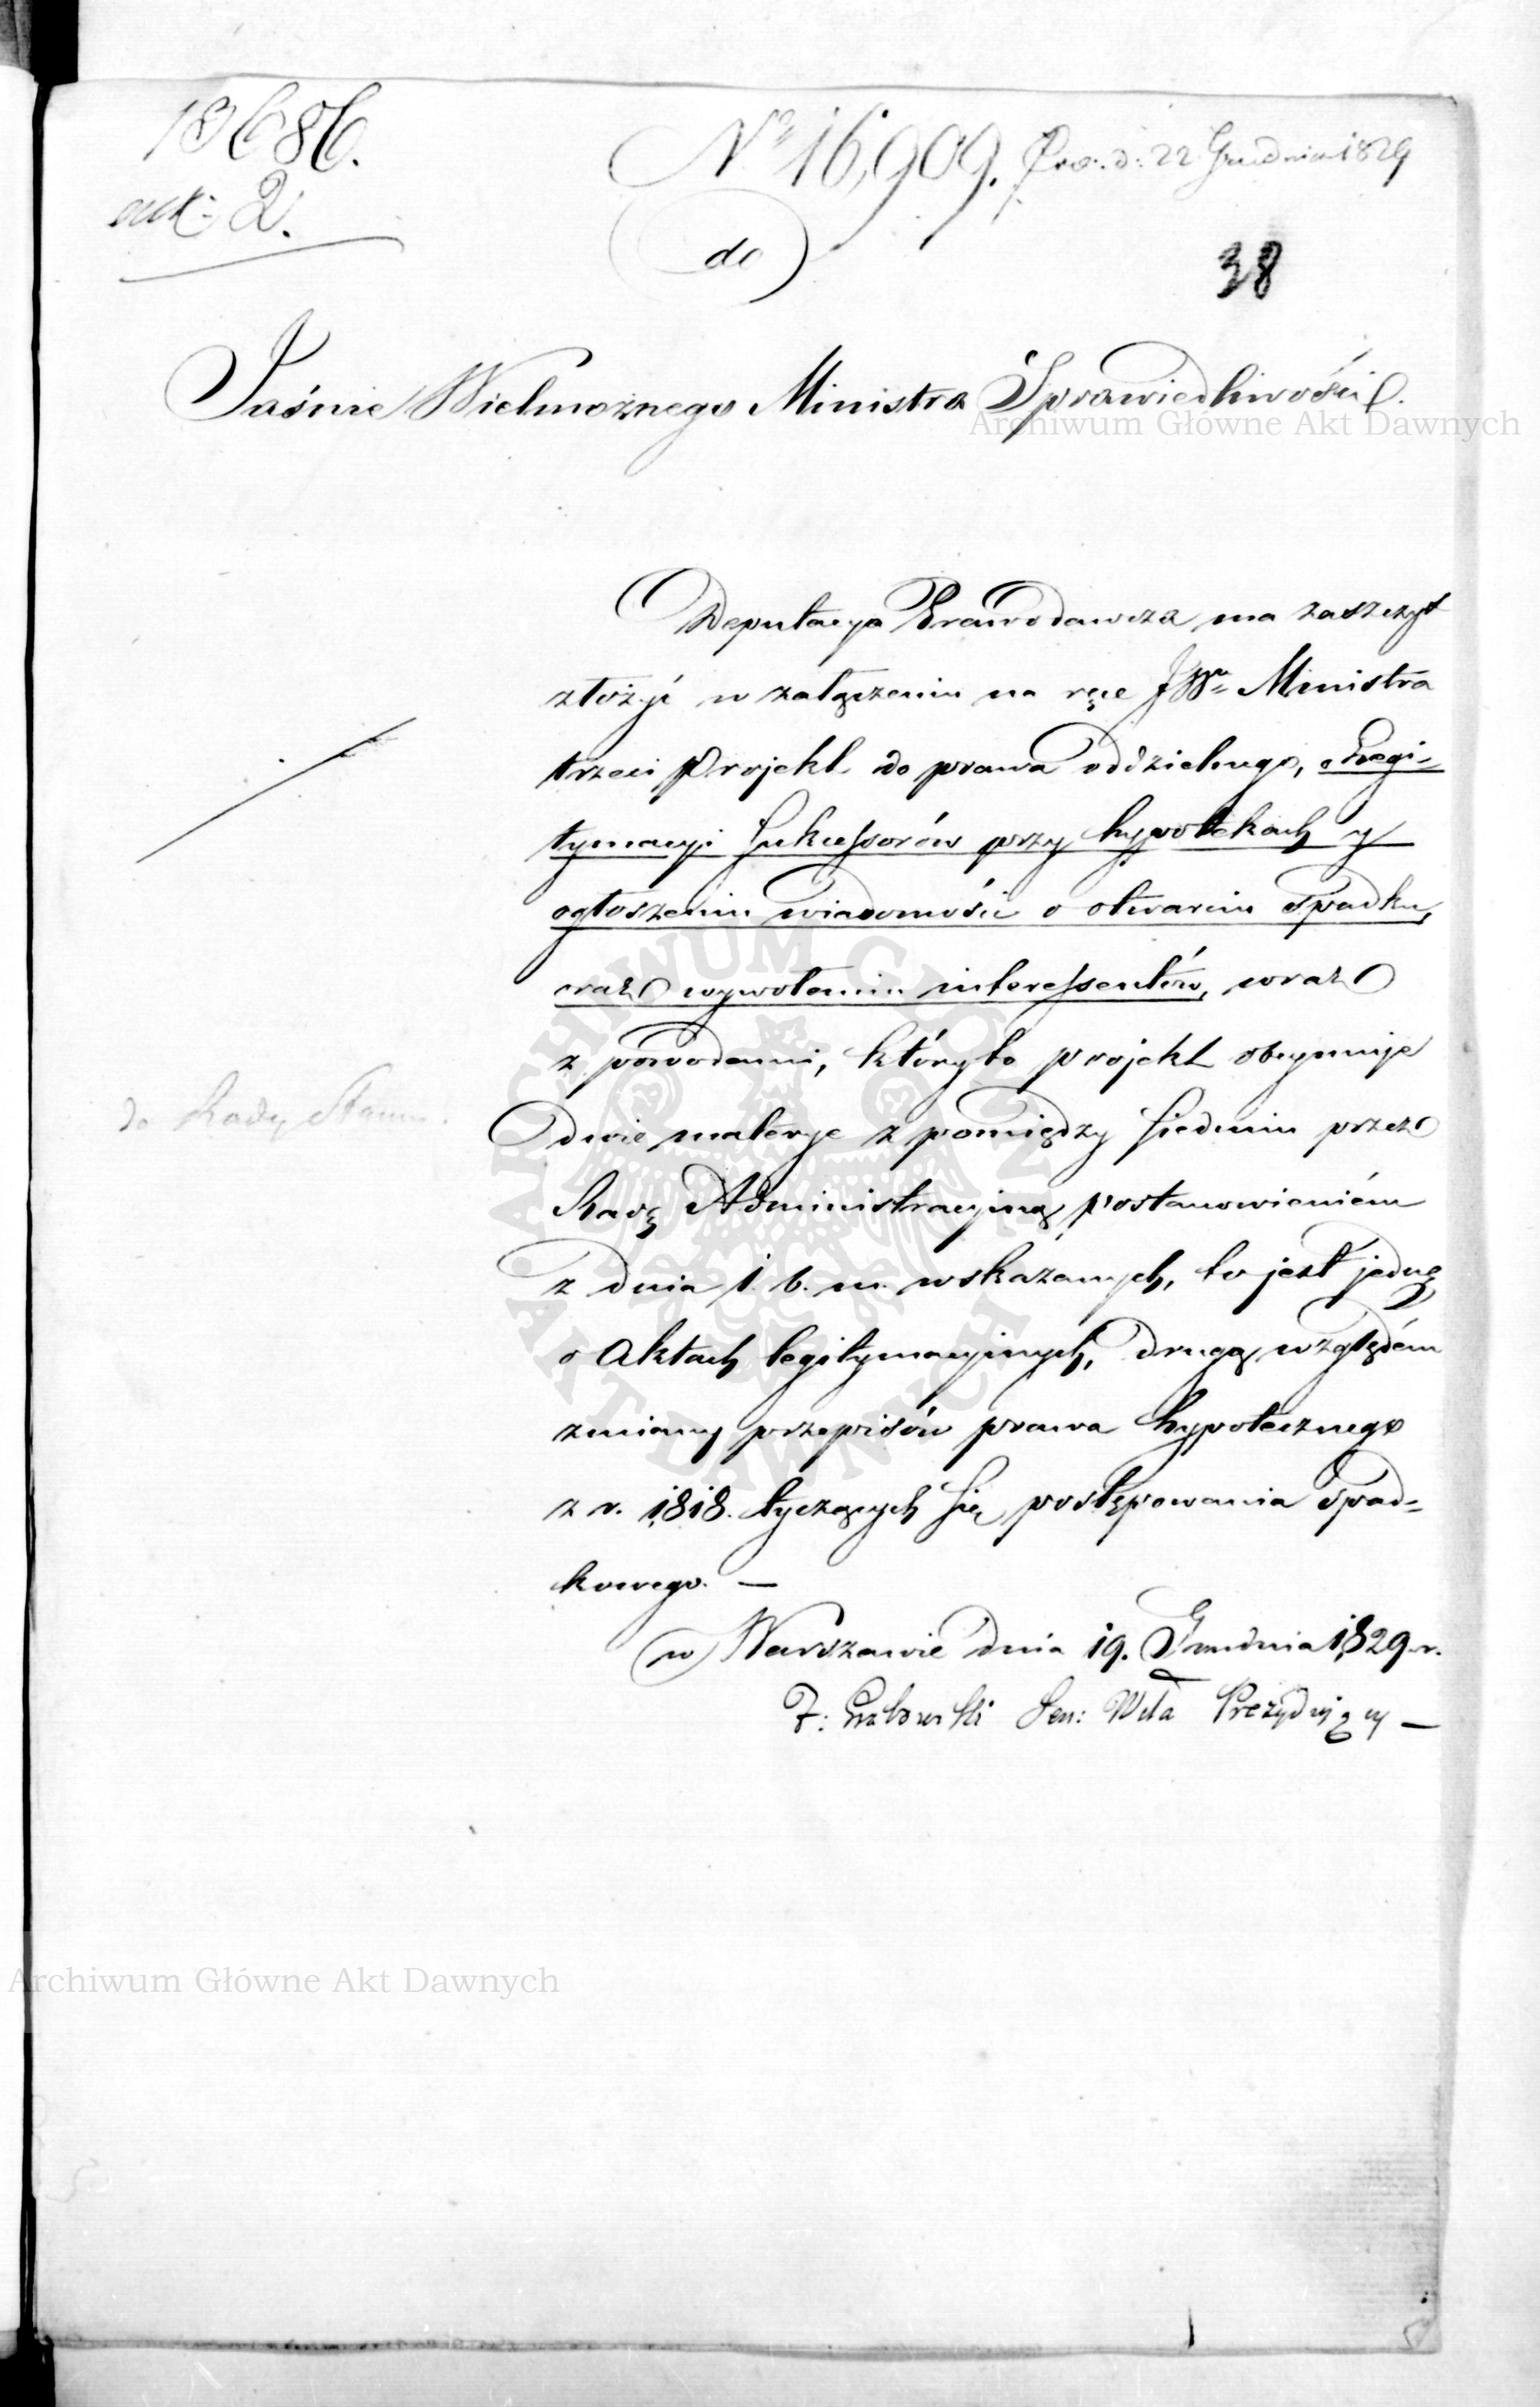 18686.
N° 16,909. Prez. d: 22 Grudnia 1829
2.
do
38
Jaśnie Wielmożnego Ministra Sprawiedliwości.
Archiwum Główne Akt Dawnych
Deputacya Prawodawcza ma zaszczyt
złożyć w załączeniu na ręce JWº Ministra
trzeci Projekt do prawa oddzielnego, o Legi-
tymacyi Sukcessorów przy hypotekach y
ogłoszeniu wiadomości o otwarciu Spadku,
oraz wywołaniu interessentów, wraz
z powodami, któryto projekt obeymuje
do Rady Stanu.
dwie materye z pomiędzy siedmiu przez
Radę Administracyiną postanowieniém
z dnia 1. b. m. wskazanych, to jest jednę
o Aktach legitymacyinych, drugą względém
zmiany przepisów prawa hypotecznego
z r. 1818. tyczących się postępowania Spad-
kowego. —
w Warszawie dnia 19. Grudnia 1829 r.
F: Grabowski Sen: Wda Prezydujący —
Archiwum Główne Akt Dawnych
ARCHIWUM GŁÓWNE AKT DAWNYCH